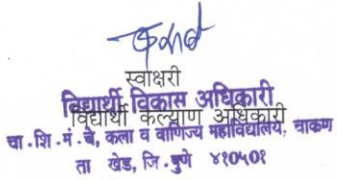 स्वाक्षरी
विद्यार्थी विकास अधिकारी
विद्यार्थी कल्याण अधिकारी
चा.शि.मं.चे, कला व वाणिज्य महाविद्यालय, चाकण
ता खेड, जि.पुणे ४१०५०१